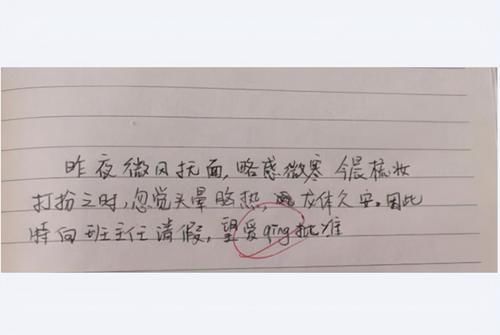 昨夜微风抚面,略感微寒 今晨梳妆
打扮之时,忽觉头晕脸热, 龙体欠安。因此
特向班主任请假,望爱qing批准